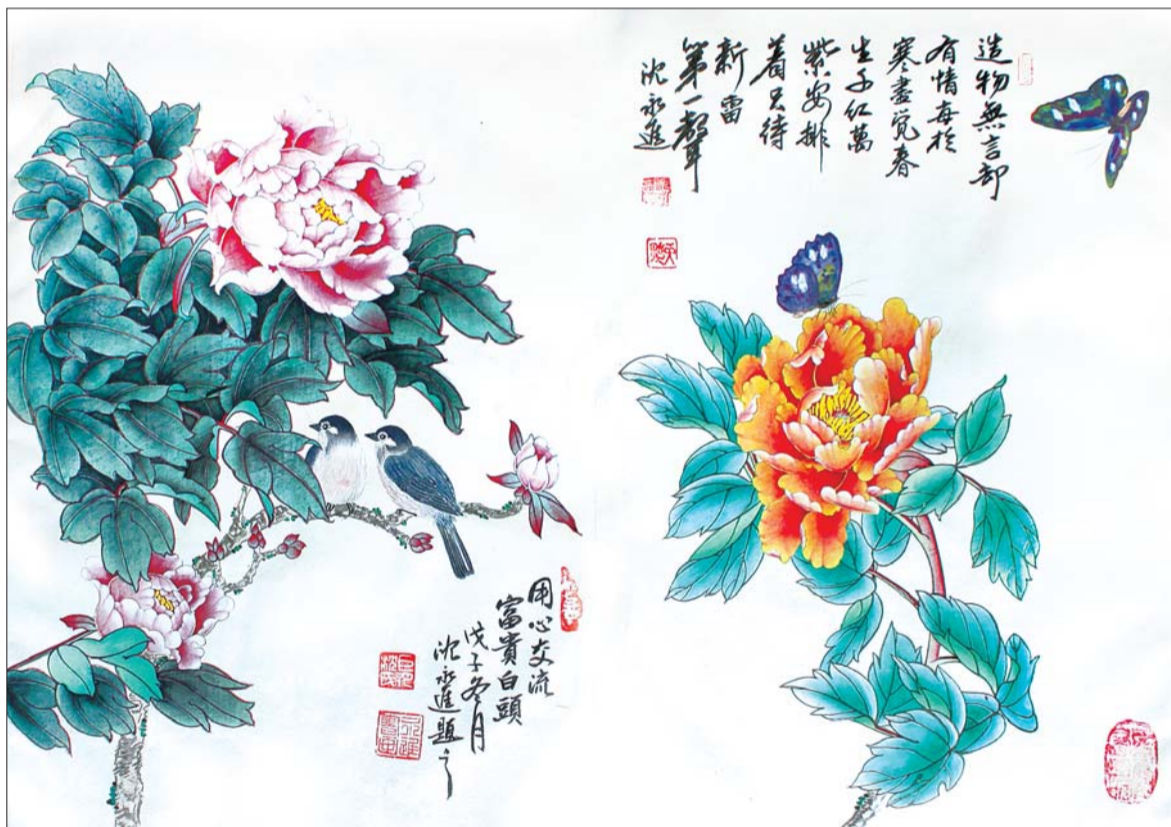 造物無言却
有情每於
寒盡覚春
生千紅萬
紫安排
着只待
新雷
第一聲
沈永進
用心交流
富貴白頭
戊子冬月
沈永進題